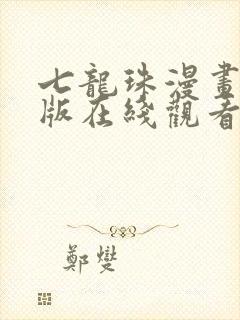 七龍珠漫畫
版在綫觀看
鄭燮